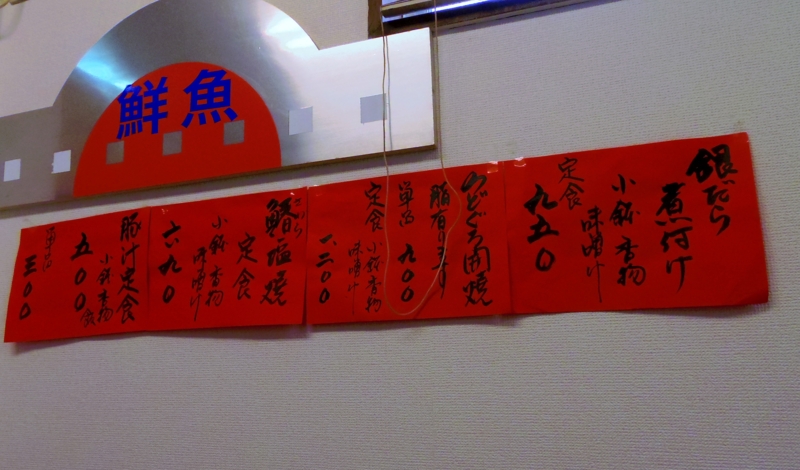 鮮魚
銀だら
煮付け
小鉢 香物
味噌汁
定食
九五〇
のどぐろ開焼
脂有り〼
単品 九〇〇
定食 小鉢 香物
味噌汁
一、二〇〇
さわら
鰆塩焼
定食
小鉢 香物
味噌汁
六九〇
豚汁定食
小鉢 香物
五〇〇
単品
三〇〇